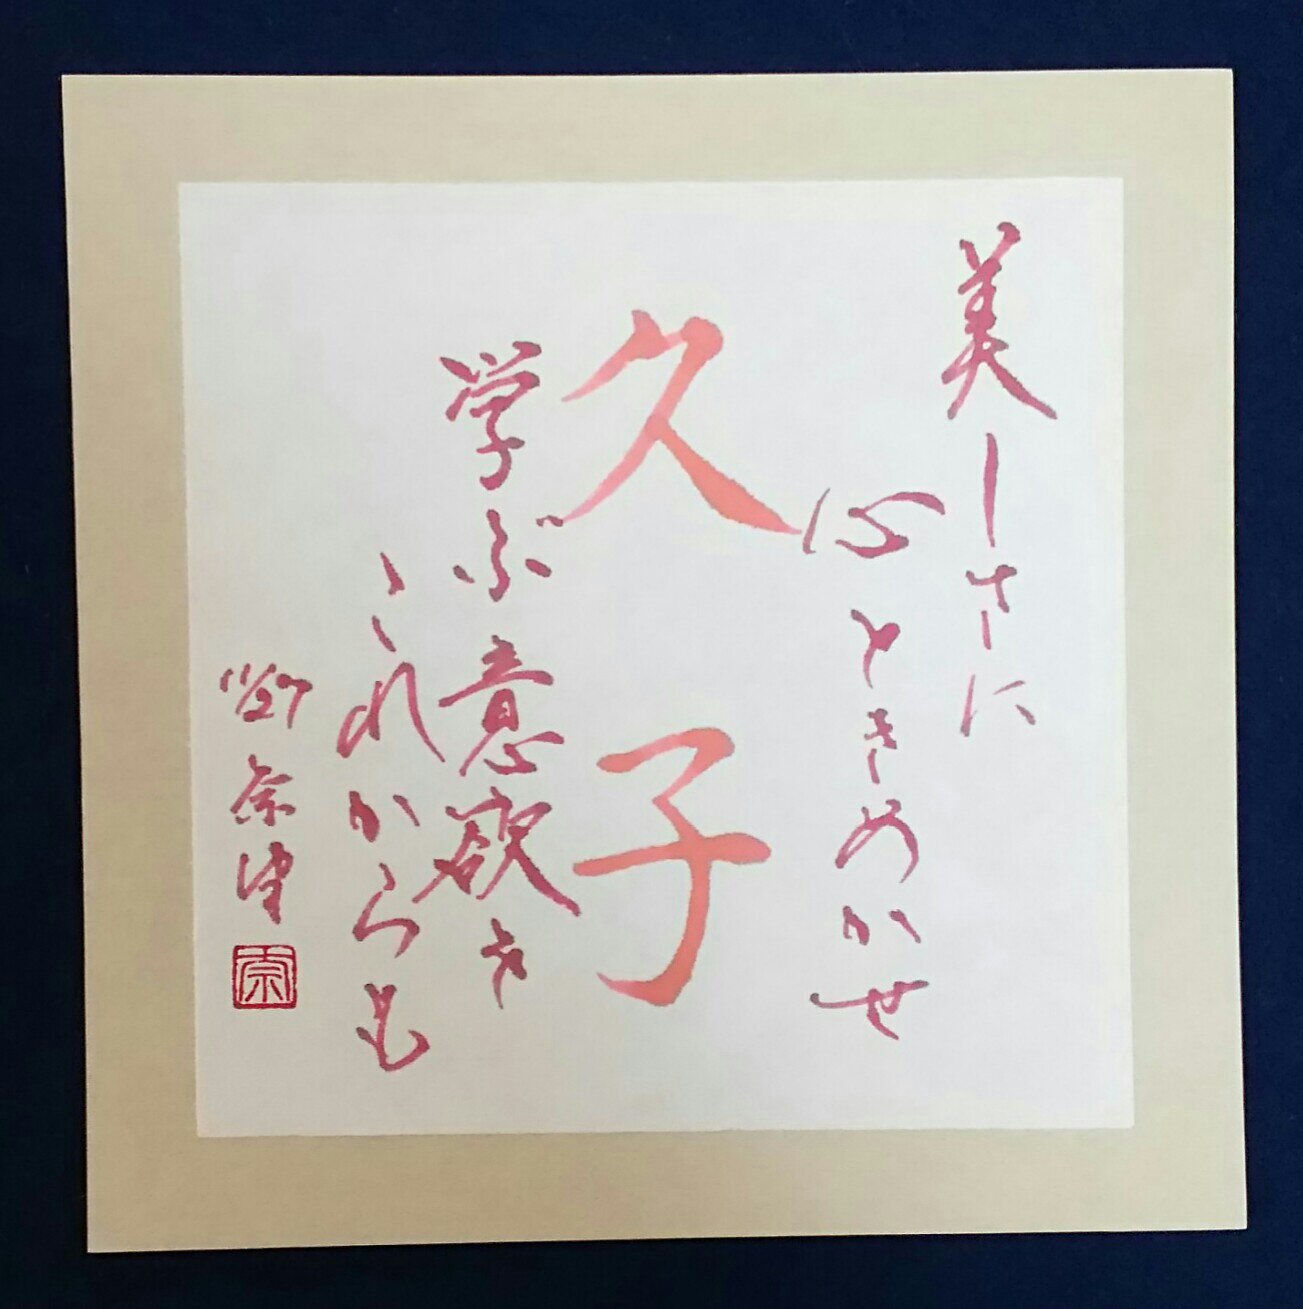 美しさに
心ときめかせ
久子
学ぶ意欲き
これからも
11/27
奈津